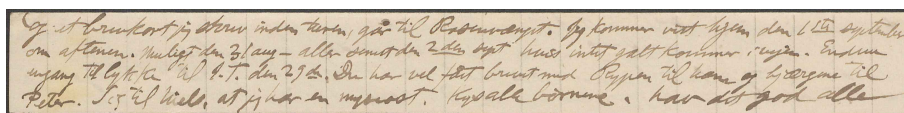 og et brevkort jeg skrev inden turen, går til Rosenvænget. Jeg kommer vist hjem den 1ste september
om aftenen. Muligt den 31 aug – aller senest den 2den sept hvis intet galt kommer i vejen. Endnu
engang til lykke til den 29de. Du har vel fået brevet med Rypen til ham og bjærgene til
Peter. til Niels, at jeg har en. Kys alle børnene. hav det god alle